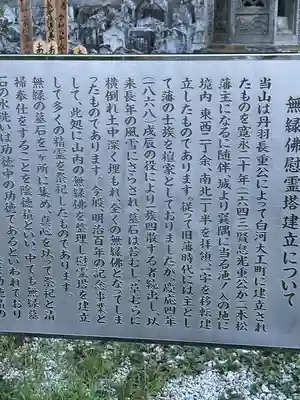 無縁佛慰霊塔建立について
当山は丹羽長重公によって白河大工町に建立され
たものを寛永二十年(一六四三)賢兒光重公が二本松
藩主になるに随伴、城より巽隅に当る池ノ入の地に
境内 東西二十余、南北二十半を拝領、一宇を移転建
立したものであります。從って旧藩時代には主とし
て藩の士族を檀家としておりましたが慶応四年
(一八六八)戊辰の役により一族四散する者続出し、以
来長年の風雪にさらされ墓石は苔むし、草むらに
横倒れ土中深く埋もれ、全くの無縁佛となってしま
ったものであります。今般、明治百年の記念事業と
して、此処に山内の無縁佛を整理し慰霊塔を建立
して多くの精霊を祭祀したものであります。
無縁の墓石を一ヶ所に集め、直心を以って祭祀を清
掃奉仕をすることを陰徳積といい、中でも無縁墓
石の水洗いは功徳中の功徳であるといわれており